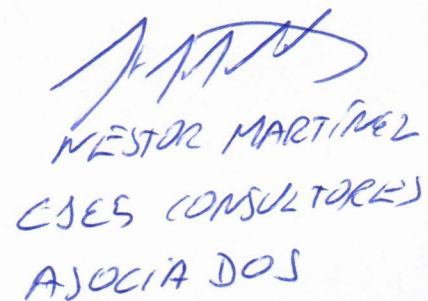 NESTOR MARTÍNEZ
ESES CONSULTORES
ASOCIADOS